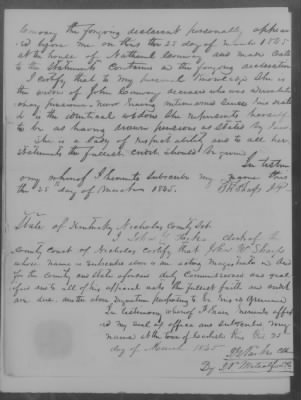 Conway the foregoing declarant personally appea-
red before me on this the 25 day of March 1845
at the house of Nathaniel Conway and made oath
to the statements contained in the foregoing declaration
I certify that to my personal knowledge she is
the widow of John Conway deceased who was a revolutio-
nary pensioner. now living
is the identical widow she represents herself
to be as having drawn pensions as stated by law.
She is a Lady of respectability and to all her
statements the fullest credit should be given
In testim
ony whereof I hereunto subscribe my name this
the 25th day of March 1845.
State of Kentucky Nicholas County Sct.
I clerk of the
County Court of Nicholas certify that John W. Sharp
whose name is subscribed above is an acting magistrate in and
for the county and state aforesaid duly Commissioned and qual
ified and to all his official acts the fullest faith and credit
are due. and the above signature purporting to be his is genuine
In testimony whereof I have hereunto affix
ed my seal of office and subscribed my
name at the town of Carlisle this the 25
day of March 1845
By